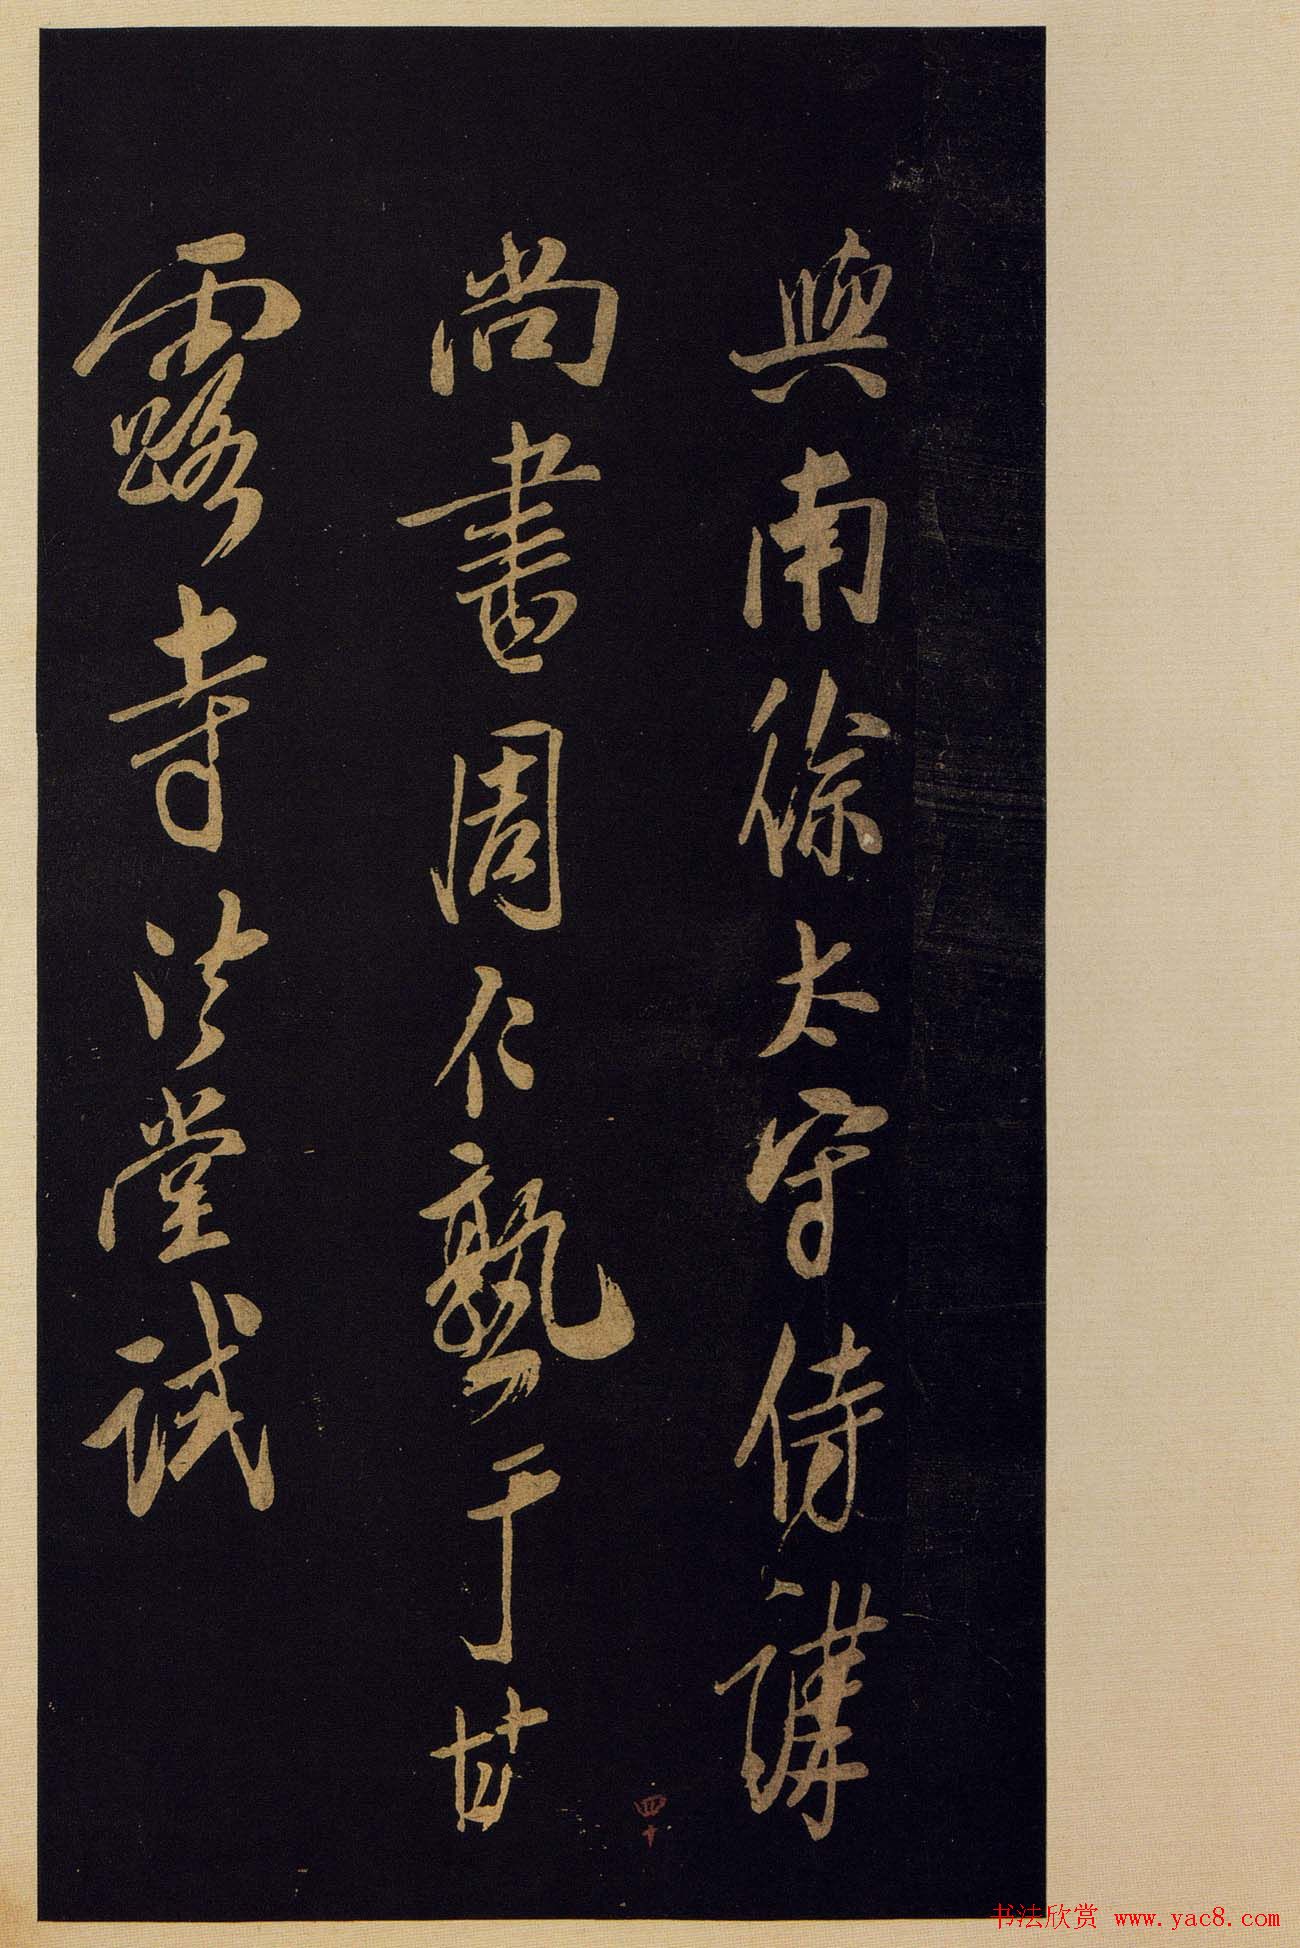 與南徐太守侍講
尚書周仁熟于甘
露寺法堂試
四十
书法欣赏 www.yac8.com